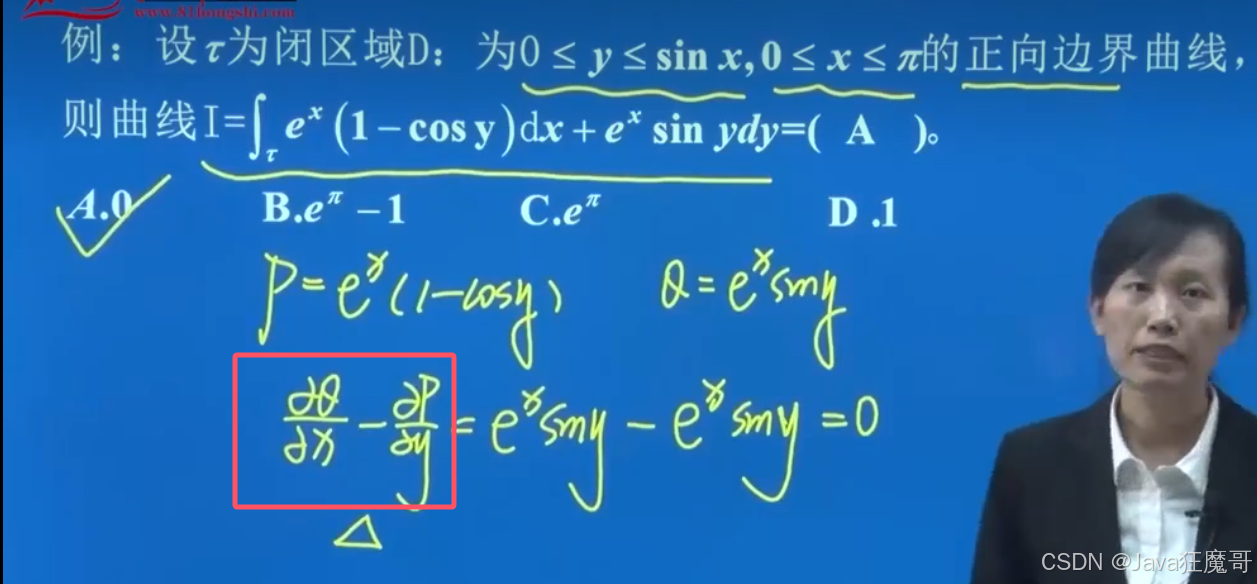 www.81fongshi.com
例：设τ为闭区域D：为0 ≤ y ≤ sin x, 0 ≤ x ≤ π的正向边界曲线，
则曲线I=∫τ eˣ (1 − cos y)dx + eˣ sin ydy=( A )。
A.0 B.e^π − 1 C.e^π D .1
P = eˣ (1-cosy) Q = eˣ siny
∂Q/∂x − ∂P/∂y = eˣ siny − eˣ siny = 0
△
CSDN @Java狂魔哥